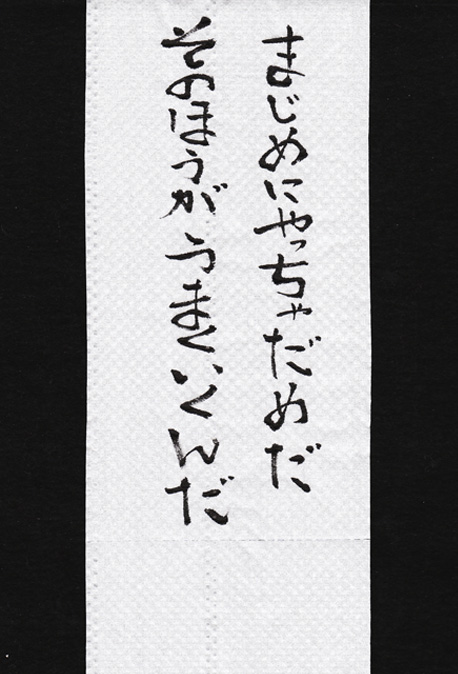 まじめにやっちゃだめだ
そのほうがうまくいくんだ